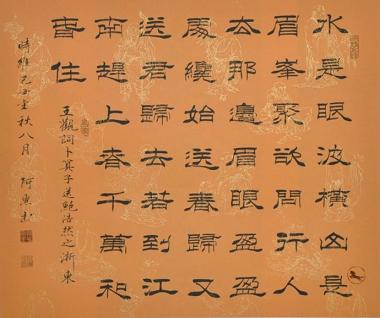 水是眼波橫山是
眉峯聚欲問行人
去那邊眉眼盈盈
處纔始送春歸又
送君歸去若到江
南趕上春千萬和
春住
王觀詞卜算子送鮑浩然之浙東
時維己丑秋八月